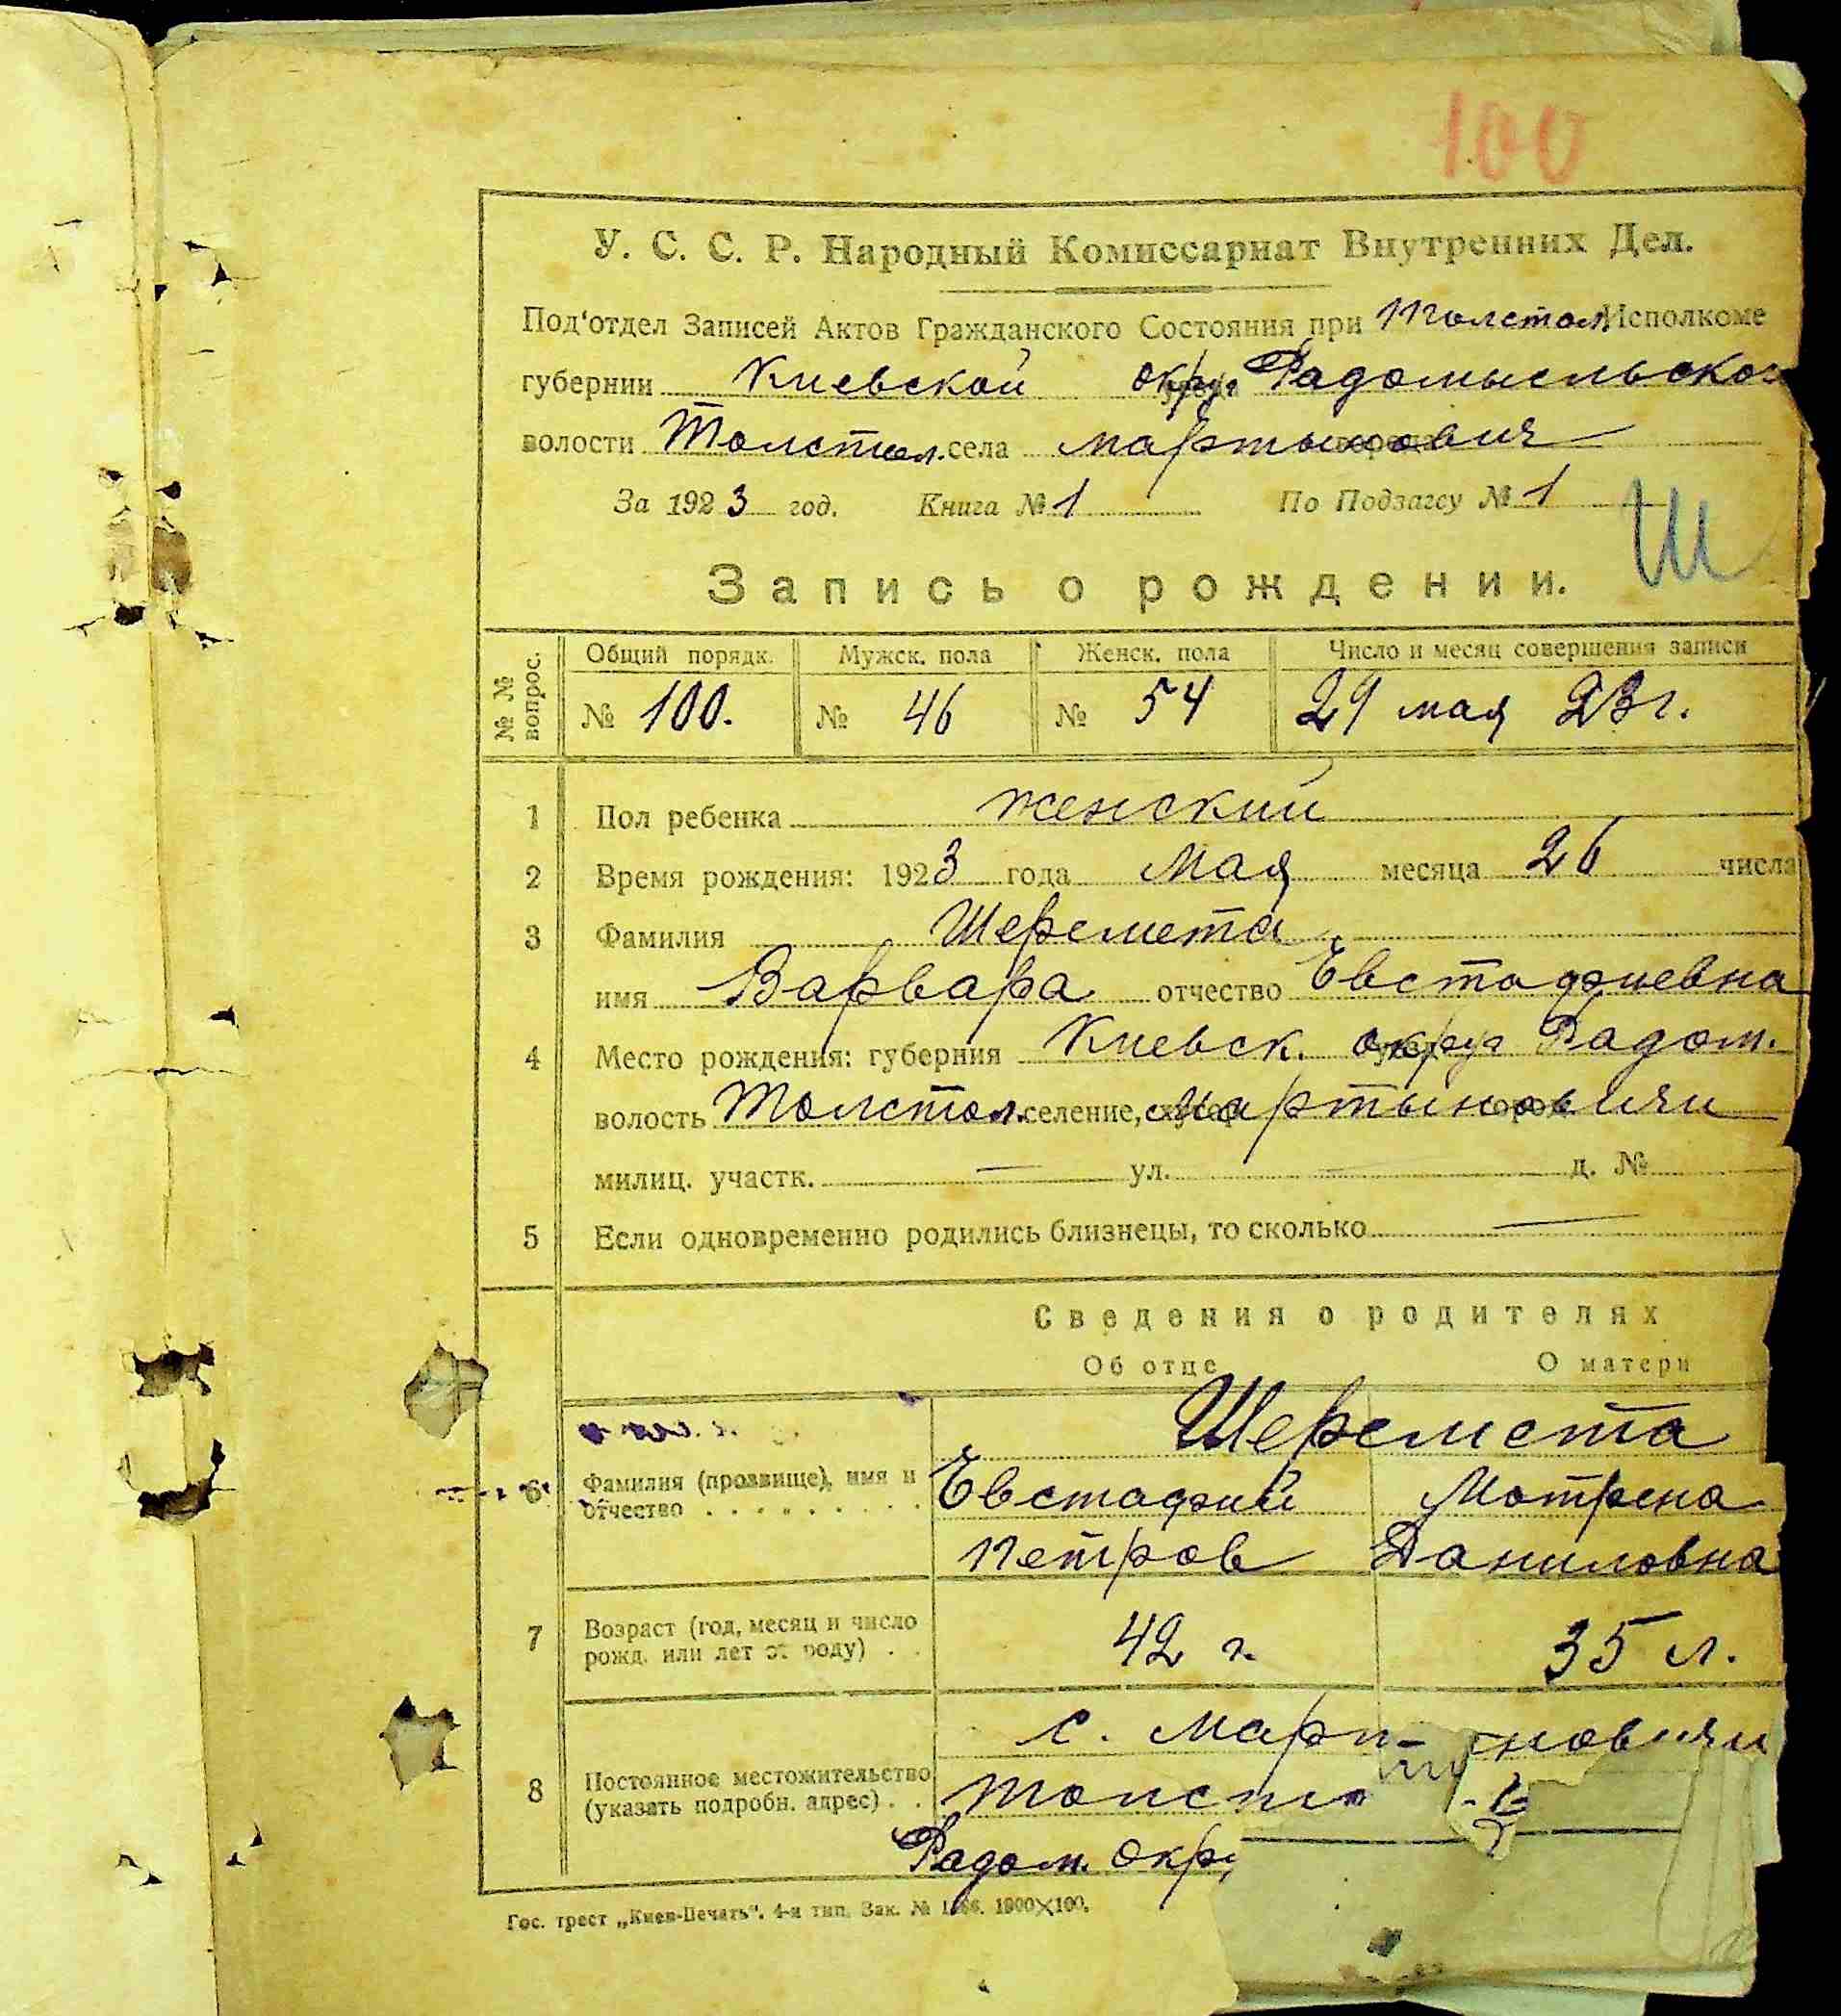 100
У. С. С. Р. Народный Комиссариат Внутренних Дел.
Под'отдел Записей Актов Гражданского Состояния при Толстол. Исполкоме
губернии Киевской окру. Радомысльской
волости Толстол. села Мартынович
За 1923 год. Книга № 1 По Подзагсу № 1
Ш
Запись о рождении.
№ № вопрос. Общий порядк. Мужск. пола Женск. пола Число и месяц совершения записи
№ 100. № 46 № 54 29 мая 23 г.
1 Пол ребенка женский
2 Время рождения: 1923 года Мая месяца 26 числа
3 Фамилия Шеремета
имя Варвара отчество Евстафиевна
4 Место рождения: губерния Киевск. округ Радом.
волость Толстол. селение, Мартыновичи
милиц. участк. — ул. — д. №
5 Если одновременно родились близнецы, то сколько —
Сведения о родителях
Об отце О матери
Шеремета
6 Фамилия (прозвище), имя и Евстафий Мотрена
отчество Петров Даниловна
7 Возраст (год, месяц и число
рожд. или лет от роду) 42 г. 35 л.
с. Март новичи
8 Постоянное местожительство
(указать подробн. адрес) Толсто
Радом. окр
Гос. трест „Киев-Печать". 4-я тип. Зак. № 1000×100.